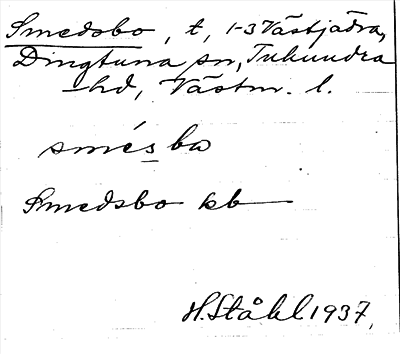 Smedsbo, t, 1-3 Västjädra,
Dingtuna sn, Tuhundra
hd, Västm. l.
smésba
Smedsbo kb
H. Ståhl 1937,